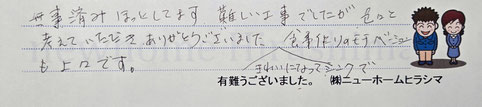 無事済みほっとしてます 難しい工事でしたが色々と
考えていただき、ありがとうございました。食事作りのモチベーション
も上々です。
きれいになってシンクで
有難うございました。 ㈱ニューホームヒラシマ